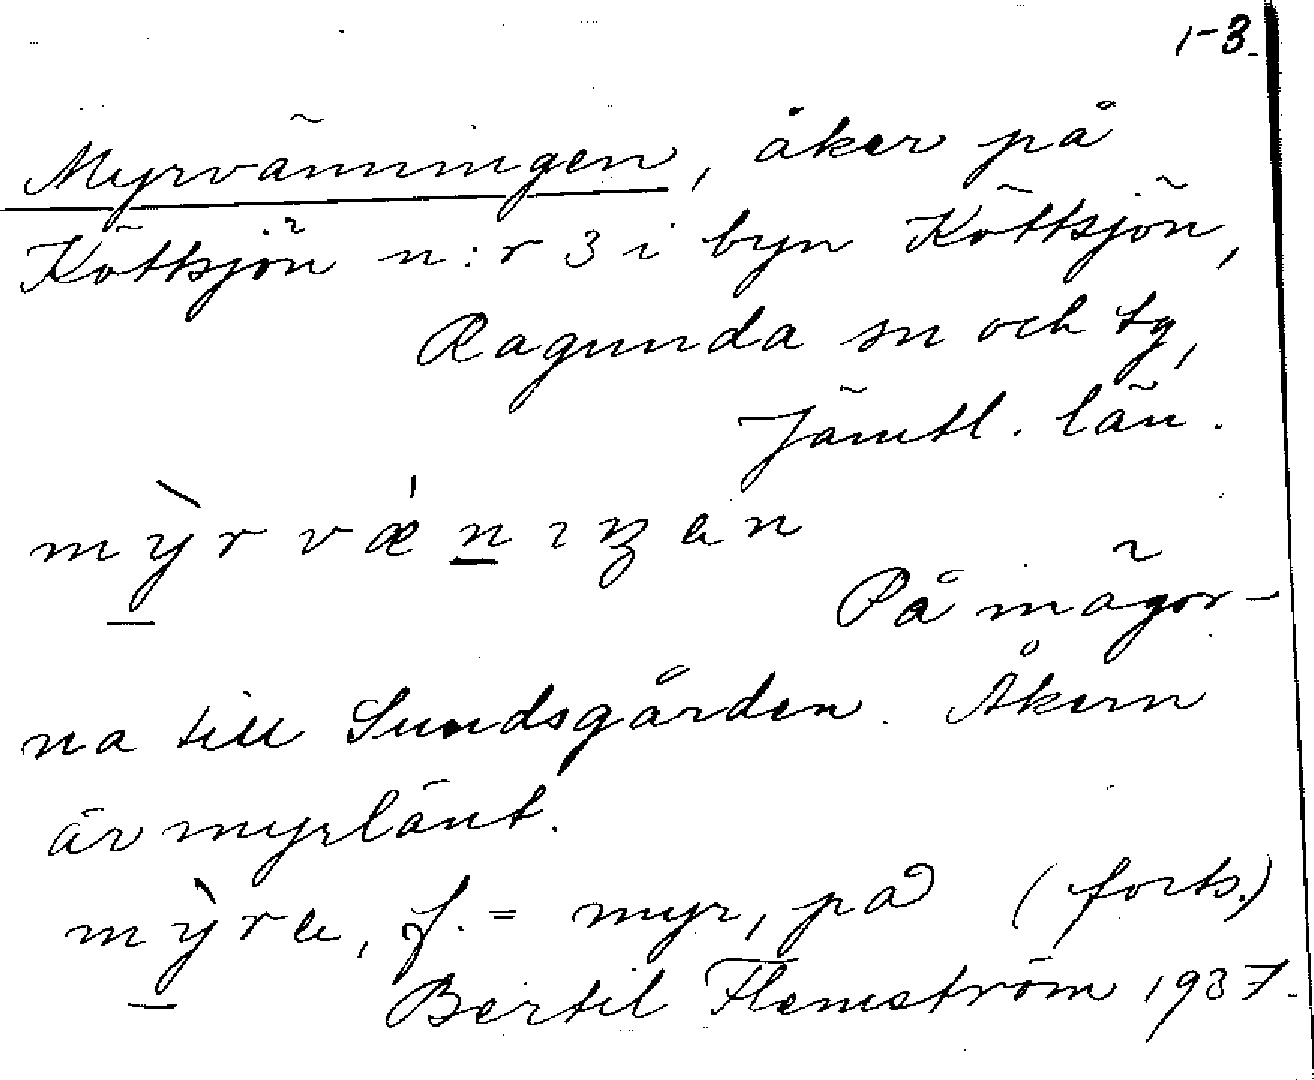 1-3.
Myrvänningen, åker på
Köttsjön n:r 3 i byn Köttsjön,
Ragunda sn och tg,
Jämtl. län.
mỳrvǽnıŋen
På mågor-
na till Sundsgården. Åkern
är myrlänt.
mỳra, f. = myr, på (forts.)
Bertil Flemström 1937.